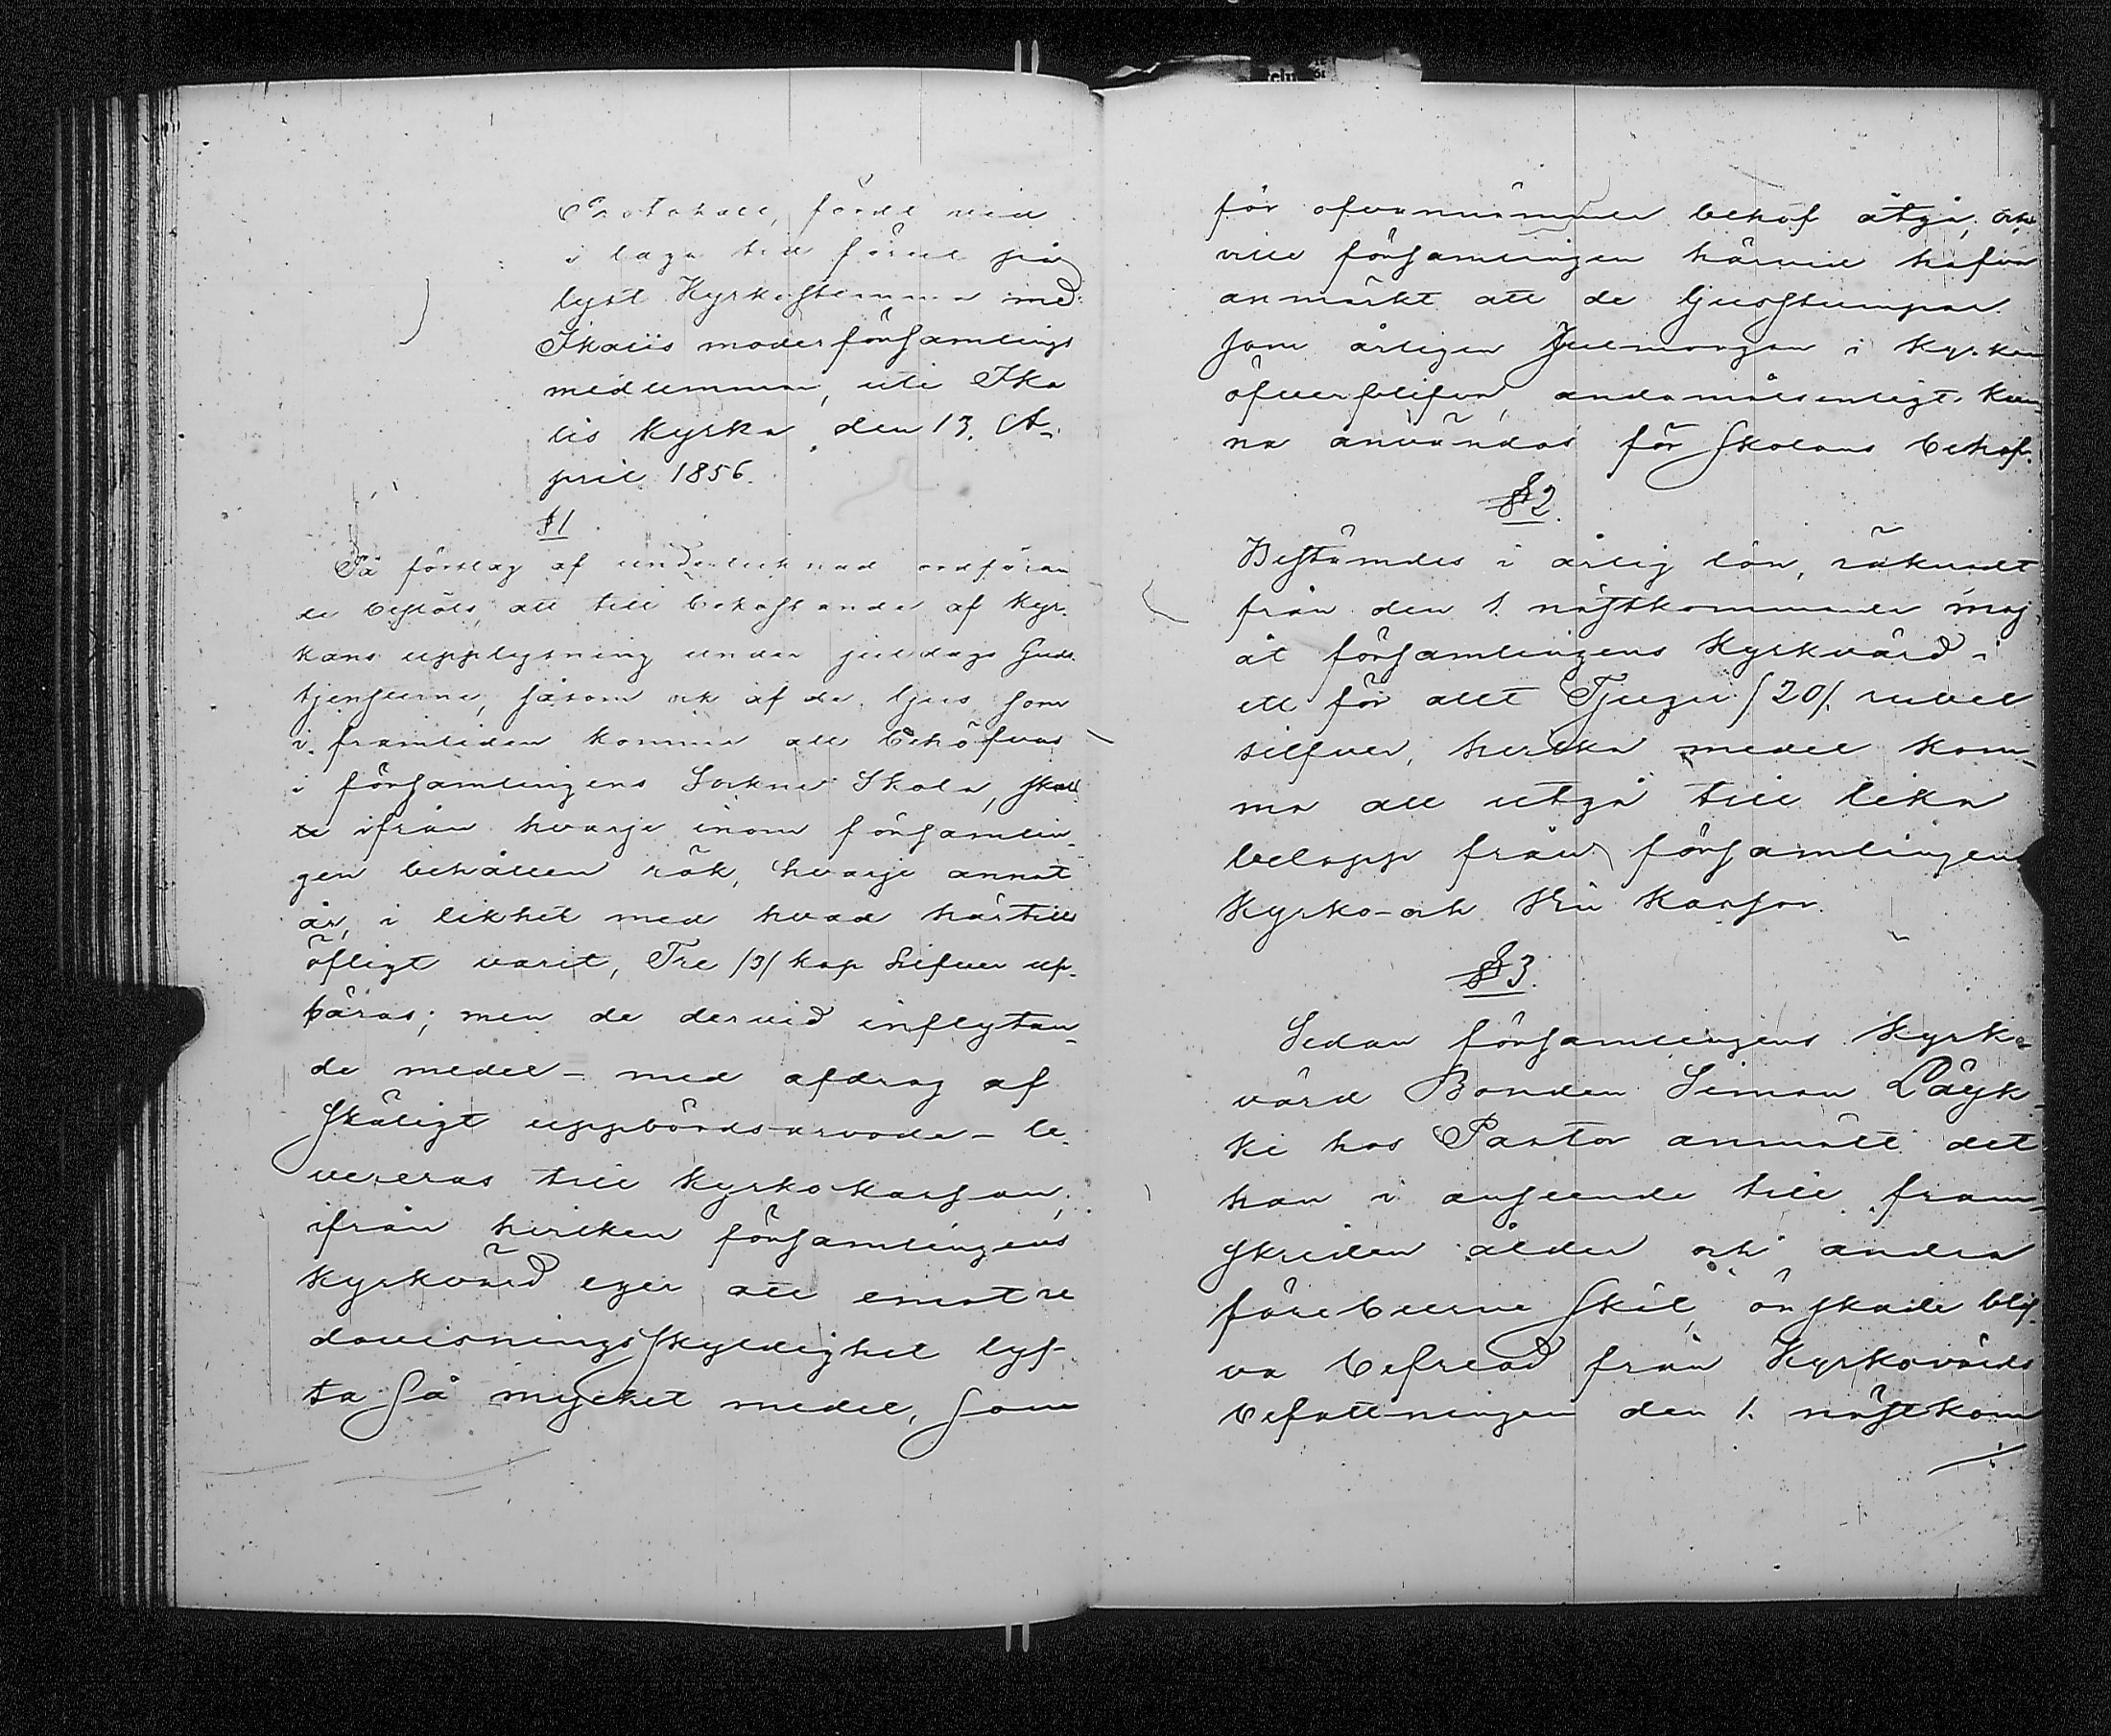 Protokoll, fördt vid
i laga tid förut på
lyst Kyrkostemma med
Ikalis moderförsamlings
medlemmar, uti Ika
lis Kyrka den 13. A-
pril 1856.
§1
På förslag af undertecknad ordföran
de beslöts, att till bekostande af kyr-
kans upplysning under juldags Guds
tjensterna, såsom ock af de ljus som
i framtiden komma att behöfvas
i församlingens Sockne Skola, skul
le ifrån hvarje inom församlin-
gen behållen rök, hvarje annat
år, i likhet med hvad härtills
öfligt varit, Tre /3/ kop Silfver up-
bäras; men de dervid inflytan-
de medel – med afdrag af
skäligt uppbördsarvode – le-
vereras till Kyrkokassan,
ifrån hvilken församlingens
kyrkvärd eger att emot re
dovisningsskyldighet lyf-
ta så mycket medel, som
för ofvannämnda behof åtgå, och
vill församlingen härvid hafva
anmärkt att de ljusstumpar
som årligen Julmorgon i kyrkan
öfverblifva, andamålsenligt kun-
na användas för skolans behof.
§2.
Bestämdes i årlig lön, räknadt
från den 1. nästkommande maj,
åt församlingens Kyrkvärd i
ett för allt Tjugu /20/ rubel
silfver, hvilka medel kom-
ma att utgå till lika
belopp från församlingens
Kyrko- och kassor.
§3.
Sedan församlingens Kyrko-
värd Bonden Simon Läyk-
ki hos Pastor anmält det
han i anseende till fram-
skriden ålder och andra
föreburne skäl, önskade blif-
va befriad från Kyrkovärds
befattningen den 1. nästkom